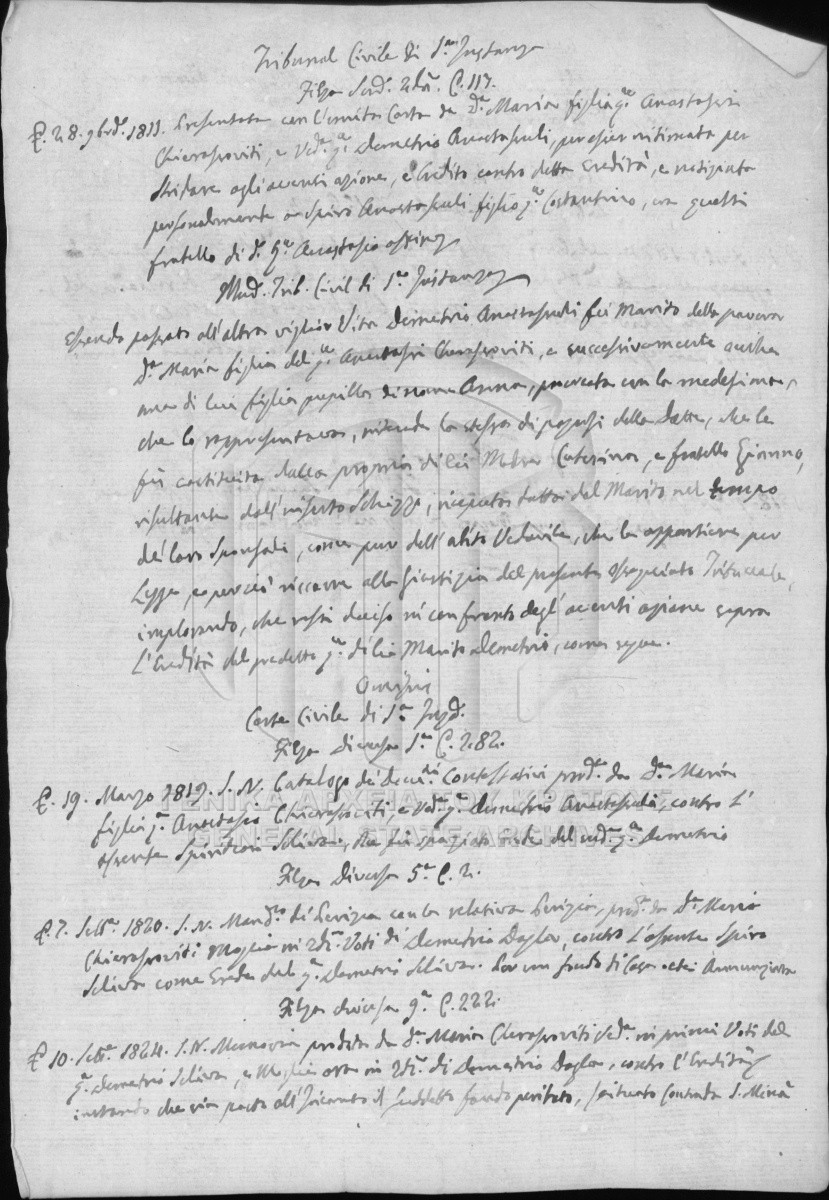 Tribunal Civile di 1.ma Instanza
Filza C. 113.
28. 9bre. 1811. Presentata con l'unita Carta da D.a Maria figlia q.m Anastasin
Chierasoviti, e Ved.a q.m Demetrio Anastasuli, per esser intimata per
Stridare agli aventi azione, e Credito contro detta Eredità, e
personalmente a Spiro Anastasuli figlio q.m Costantino,
fratello di d.o q.m Anastasio
Mud. Trib. Civil di 1.a Instanza
Essendo passato all'altra miglior Vita Demetrio Anastasuli fu Marito della povera
D.a Maria figlia del q.m Anastasin Chierasoviti, e successivamente anche
una di lui figlia pupilla di nome Anna, procreata con la medesima,
che lo rappresentava, intende la stessa di pagarsi della Dotte, che le
fu costituita dalla propria di lei Madre Caterina, e fratello Gianno,
risultante dall'inserto Schizzo, ricevuta fatta dal Marito nel tempo
de' loro Sponsali, come pur dell'abito Vedovile, che le appartiene per
Legge, e perciò ricorre alla Giustizia del presente Tribunale,
implorando, che resti deciso in confronto degl'aventi azione sopra
l'Eredità del predetto q.m di lei Marito Demetrio, come segue.
Omissis
Corte Civile di 1.a
Filza Diversa 1.a C. 282.
19. Marzo 1819. S.N. Catalogo de' prod.o da D.a Maria
figlia q.m Anastasio Chierasoviti, e Ved.a q.m Demetrio Anastasuli, contro l'
assente Spiridion Scliva, del q.m Demetrio
Filza Diversa 5.a C. 2.
7. Sett.e 1820. S.N. Mand.to di Perizia con la relativa Perizia, prod.a da D.a Maria
Chierasoviti Moglie in 2di Voti di Demetrio Dagla, contro l'assente Spiro
Scliva come Erede del q.m Demetrio Scliva. Per un fondo di Casa
Filza diversa 9.a C. 222.
10. Sett.e 1824. S.N. Memoria prodotta da D.a Maria Chierasoviti Ved.a in primi Voti del
q.m Demetrio Scliva, e Moglie ora in 2di di Demetrio Dagla, contro l'Eredità
instando che sia posto all'Incanto il suddetto fondo peritato, situato Contrada S. Minà
ΓΕΝΙΚΑ ΑΡΧΕΙΑ ΤΟΥ ΚΡΑΤΟΥΣ
GENERAL STATE ARCHIVES